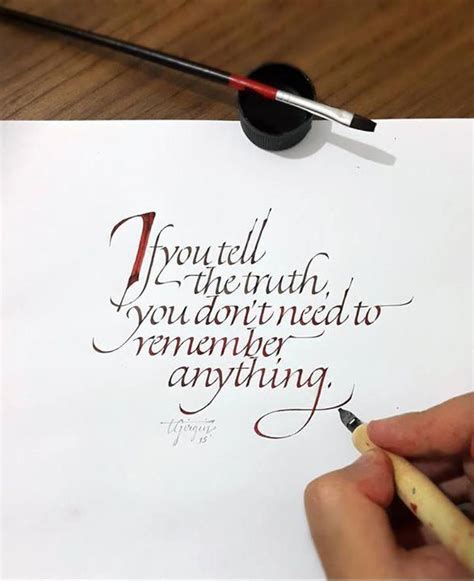 If you tell
the truth,
you don't need to
remember
anything.